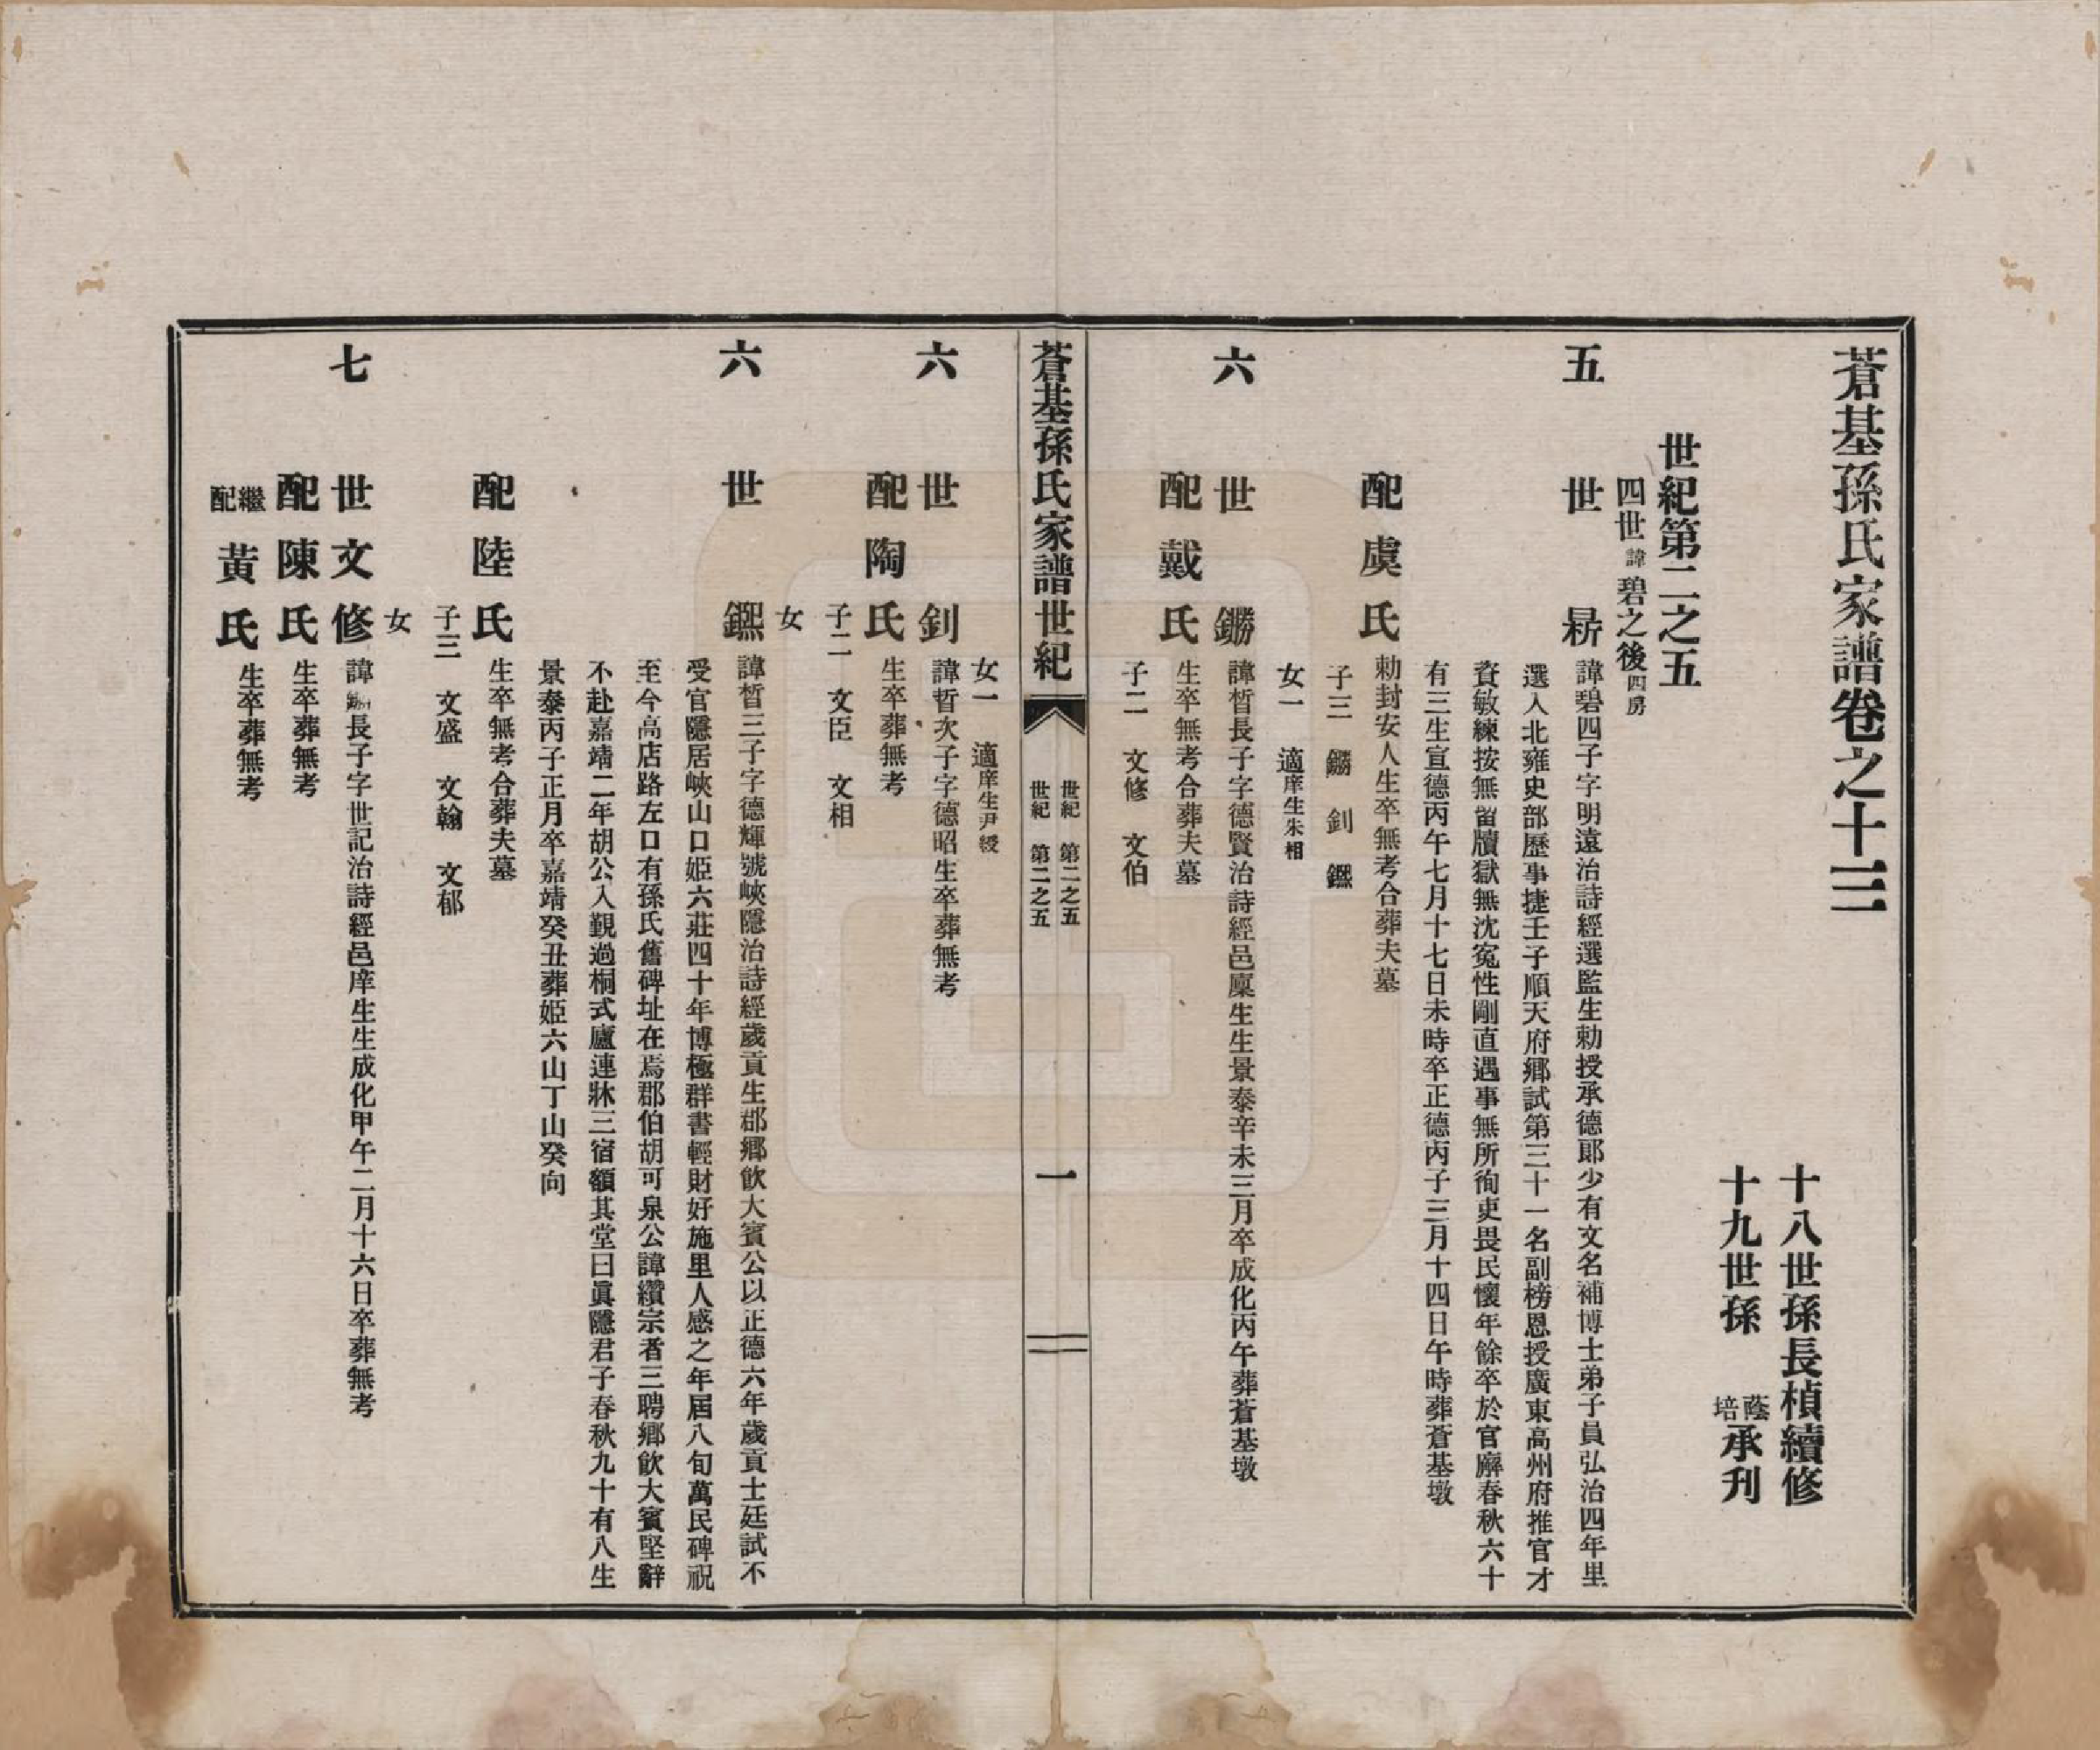 蒼基孫氏家譜卷之十三
十八世孫長楨續修
十九世孫 蔭培 承刊
世紀第二之五
四世諱碧之後四房
五世
諱碧四子字明遠治詩經選監生勅授承德郎少有文名補博士弟子員弘治四年里
選入北雍史部歷事捷壬子順天府鄉試第三十一名副榜恩授廣東高州府推官才
資敏練按無留牘獄無沈冤性剛直遇事無所徇吏畏民懷年餘卒於官廨春秋六十
有三生宣德丙午七月十七日未時卒正德丙子三月十四日午時葬蒼基墩
配虞氏 勅封安人生卒無考合葬夫墓
子三 鐊 釗 鑃
女一 適庠生朱相
六世 諱晳長子字德賢治詩經邑廩生生景泰辛未三月卒成化丙午葬蒼基墩
配戴氏 生卒無考合葬夫墓
子二 文修 文伯
蒼基孫氏家譜世紀
世紀 第二之五
世紀 第二之五
一
女一 適庠生尹綬
六世釗 諱晳次子字德昭生卒葬無考
配陶氏 生卒葬無考
子二 文臣 文相
女
六世 諱晳三子字德輝號峽隱治詩經歲貢生郡鄉飲大賓公以正德六年歲貢士廷試不
受官隱居峽山口姬六莊四十年博極群書輕財好施里人感之年屆八旬萬民碑祝
至今高店路左口有孫氏舊碑址在焉郡伯胡可泉公諱纘宗者三聘鄉飲大賓堅辭
不赴嘉靖二年胡公入覲過桐式廬連牀三宿額其堂曰眞隱君子春秋九十有八生
景泰丙子正月卒嘉靖癸丑葬姬六山丁山癸向
配陸氏 生卒無考合葬夫墓
子三 文盛 文翰 文郁
女
七世文修 諱長子字世記治詩經邑庠生生成化甲午二月十六日卒葬無考
配陳氏 生卒葬無考
繼配黃氏 生卒葬無考